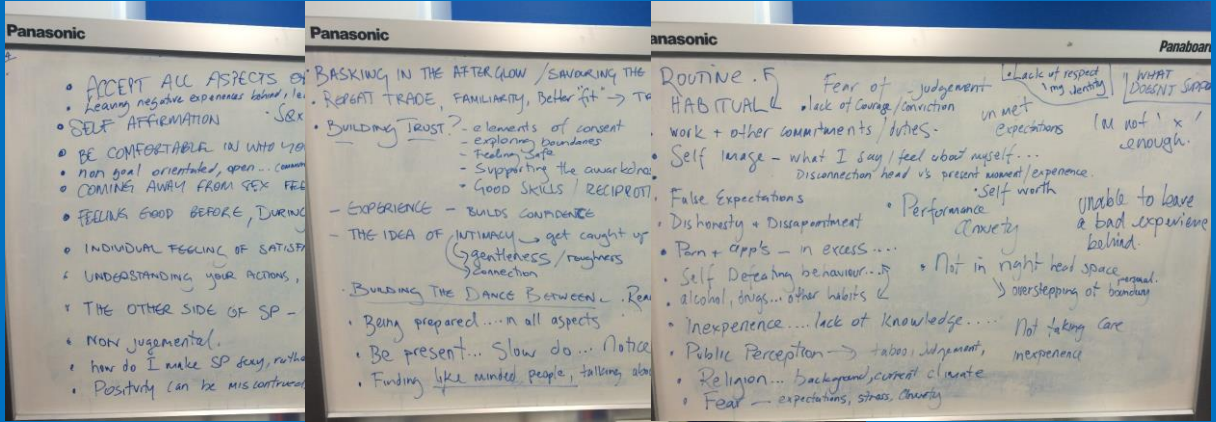 Panasonic
• ACCEPT ALL ASPECTS O
• Leaving negative experiences behind, le
• SELF AFFIRMATION • Sex
• BE COMFORTABLE IN WHO YO
• non goal orientated, open...
• COMING AWAY FROM SEX FEE
• FEELING GOOD BEFORE, DURING
• INDIVIDUAL FEELING OF SATISF
• UNDERSTANDING YOUR ACTIONS,
• THE OTHER SIDE OF SP –
• NON jugemental.
• how do I make SP sexy, rathe
• Positivity can be misconstrued
Panasonic
• BASKING IN THE AFTERGLOW / SAVOURING THE
• REPEAT TRADE, FAMILIARITY, Better "fit" → TR
• BUILDING TRUST? - elements of consent
- exploring boundaries
- Feeling Safe
- Supporting the
• GOOD SKILLS / RECIPROT
– EXPERIENCE – BUILDS CONFIDENCE
– THE IDEA OF INTIMACY → get caught up
gentleness / roughness
connection
• BUILDING THE DANCE BETWEEN.. • Rea
• Being prepared.... in all aspects
• Be present... Slow do... Notice
• Finding like minded people, talking abo
anasonic
Panaboar
ROUTINE.
HABITUAL
Fear of - judgement
• Lack of respect
my identity
WHAT
DOESNT SUPPO
• lack of Courage/conviction
work + other commitments / duties.
un met
expectations
I'm not 'x'
enough.
• Self Image – what I say / feel about myself...
Disconnection head vs present moment/experience.
• Self worth
• False Expectations
• Performance
anxiety
unable to leave
a bad experience
behind.
• Dishonesty + Dissapointment
• Porn + app's – in excess....
• Self Defeating behaviour...
• alcohol, drugs... other habits
• Not in right head space
↘ overstepping of personal boundary
• Inexperience.... lack of Knowledge.....
Not taking care
inexperience
• Public Perception → taboo, judgement,
• Religion... background, current climate
• Fear – expectations, stress, anxiety